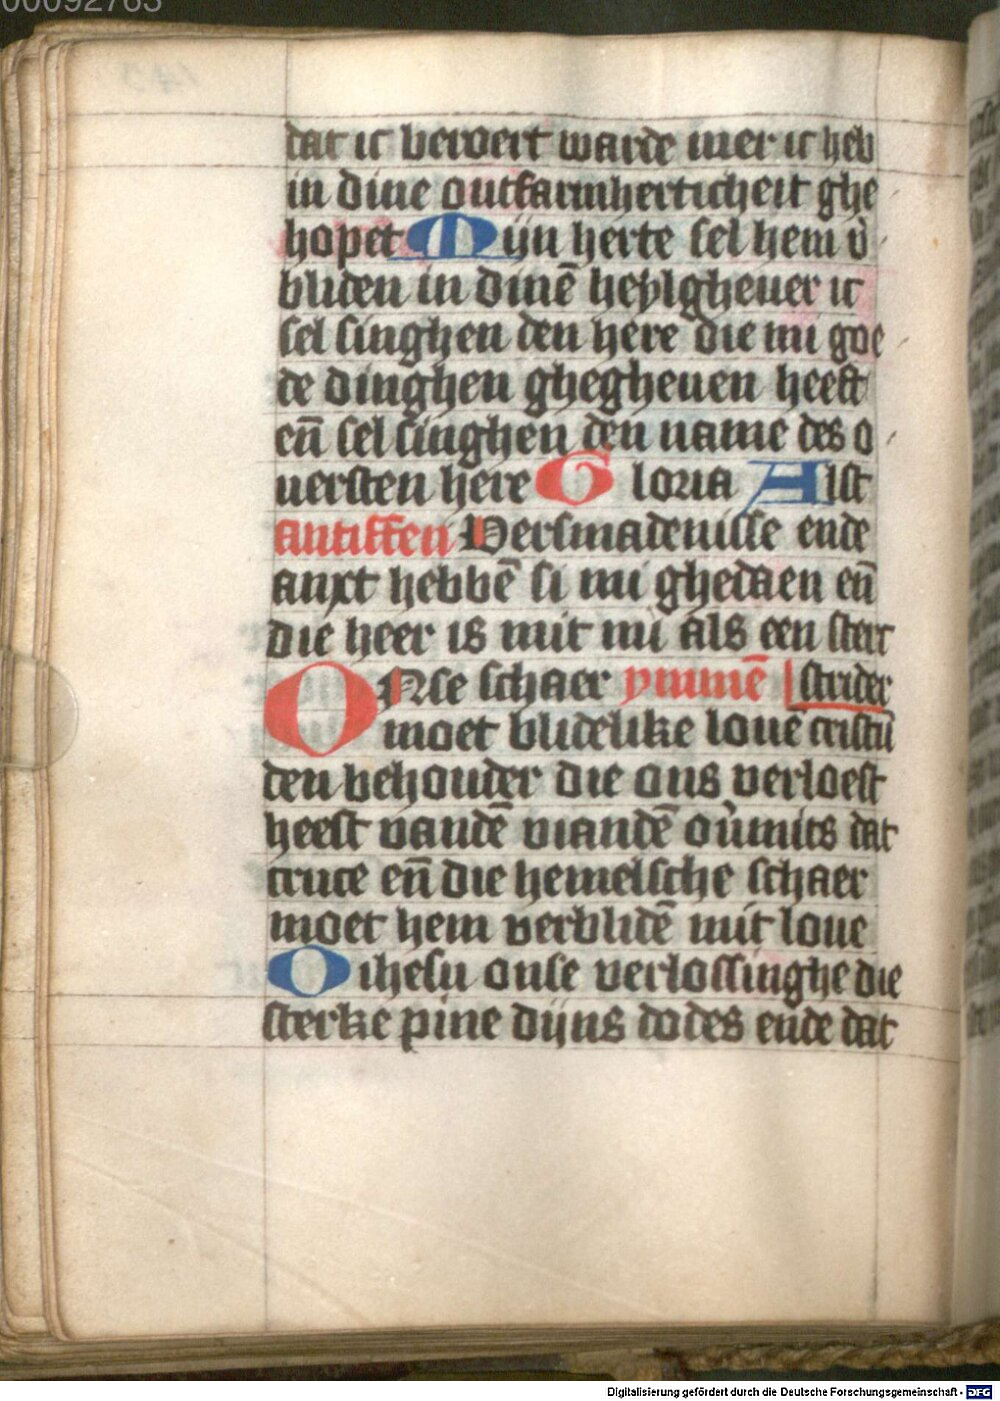 00092763
dat ic beroert warde mer ic heb
in dine ontfarmherticheit ghe
hopet Mijn herte sel hem v̉
bliden in dinē heylgheuer ic
sel singhen den here die mi goe
de dinghen ghegheuen heeft
en̄ sel singhen den name des o
uersten here Gloria Alst
antiffen Versmadenisse ende
anxt hebbē si mi ghedaen en̄
die heer is mit mi als een sterc
ONse schaer ymmē strider
moet blidelike louē cristū
den behouder die ons verloest
heeft vandē viandē oủmits dat
cruce en̄ die hemelsche schaer
moet hem verblidē mit loue
O ihesu onse verlossinghe die
sterke pine dijns dodes ende dat
Digitalisierung gefördert durch die Deutsche Forschungsgemeinschaft - DFG